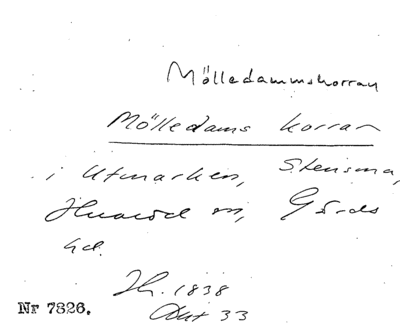 Mölledammskorran
Mölledams korran
i Utmarken, Stensma,
Huaröd sn, Gärds
hd.
Jh. 1838
Akt 33
Nr 7826.